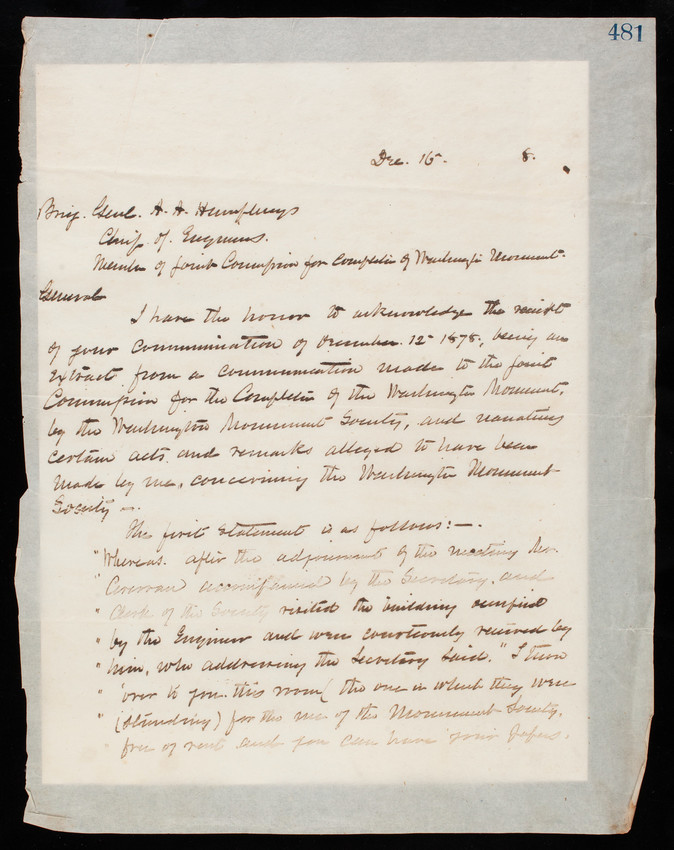 481
Dec. 16. 8.
Brig. Genl. A. A. Humphreys
Chief of Engineers.
Member of Joint Commission for Completion of Washington Monument.
General
I have the honor to acknowledge the receipt
of your communication of December 12 1878, being an
extract from a communication made to the Joint
Commission for the Completion of the Washington Monument,
by the Washington Monument Society, and narrating
certain acts and remarks alleged to have been
made by me, concerning the Washington Monument
Society —.
The first statement is as follows: —.
"Whereas. after the adjournment of the meeting Mr.
" Corcoran accompanied by the Secretary and
" Clerk of the Society visited the building occupied
" by the Engineer and were courteously received by
" him, who addressing the Secretary said. "I turn
" over to you this room ( the one in which they were
" (standing) for the use of the Monument Society.
free of rent and you can have your papers.